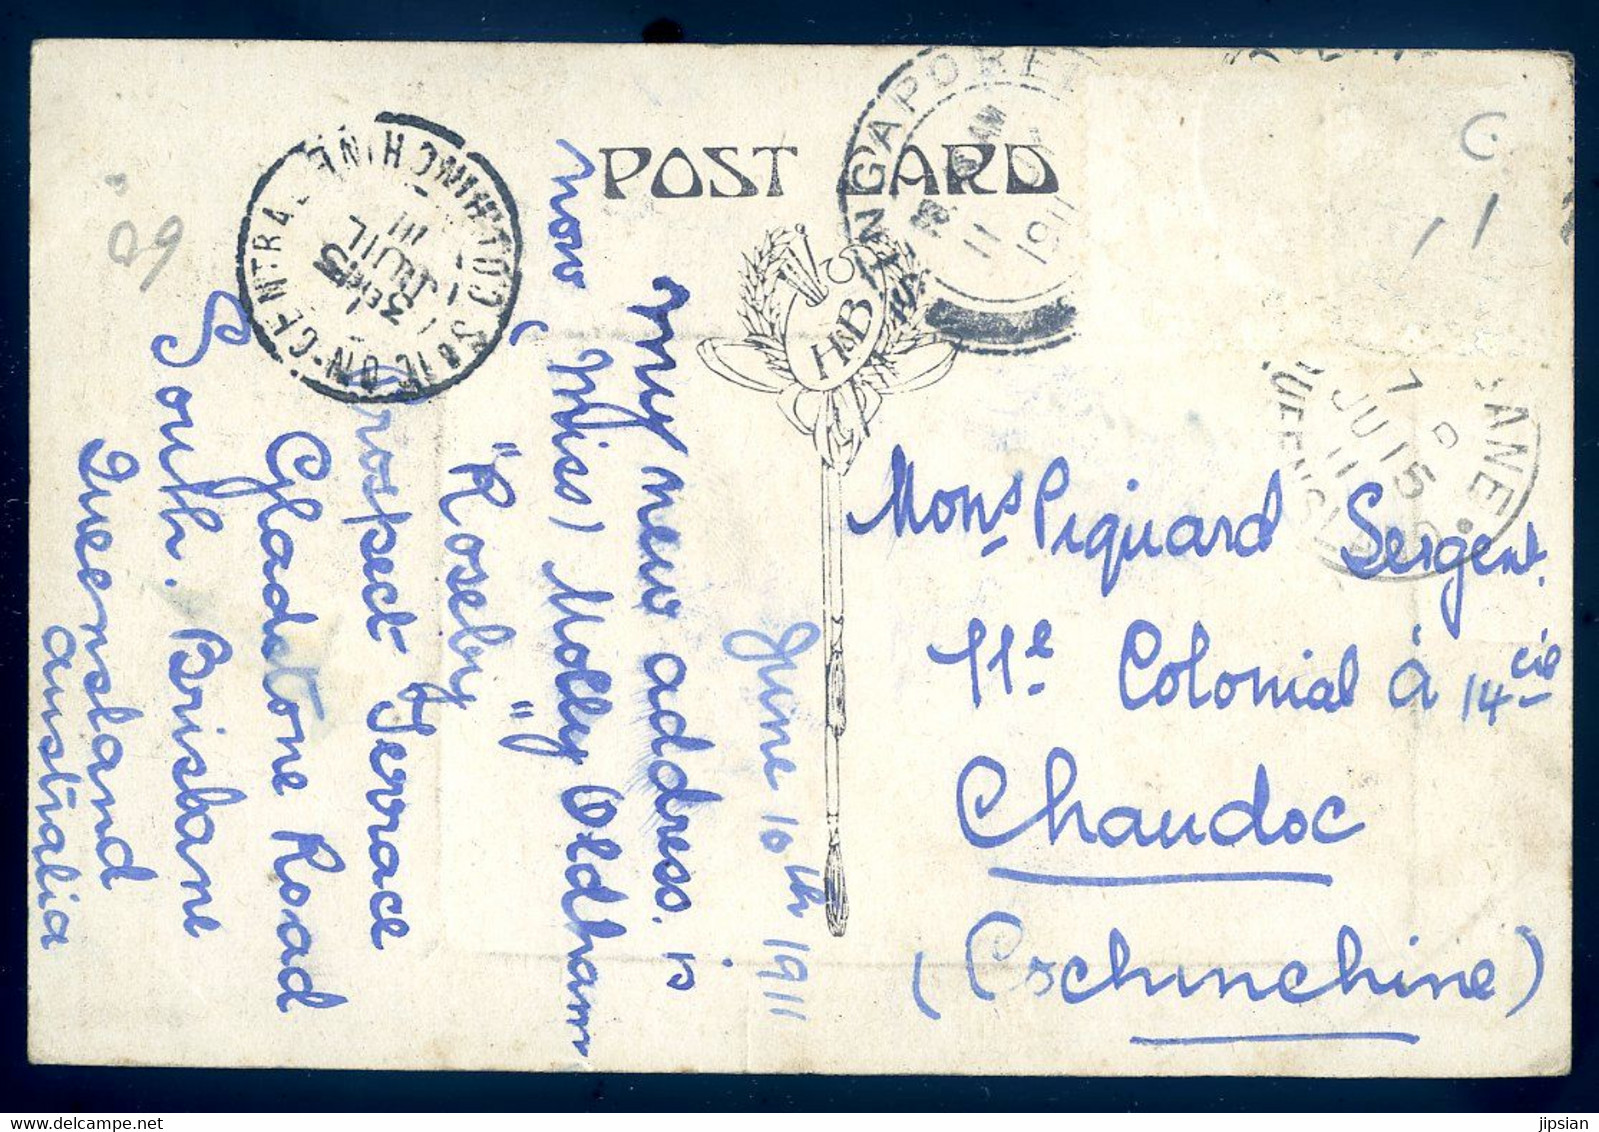 POST CARD
H&B
June 10th 1911
my new address. is
now (Miss) Molly Oldham
"Roseby"
Prospect Terrace
Gladstone Road
South. Brisbane
Queensland
Australia
Mons Piquard Sergent.
11e Colonial à 14cie
Chaudoc
(Cochinchine)
SINGAPORE
11
1911
SAIGON-CENTRAL
COCHINCHINE
JUIL
11
JU 15
11
QUEENSL
09
11
jipsian